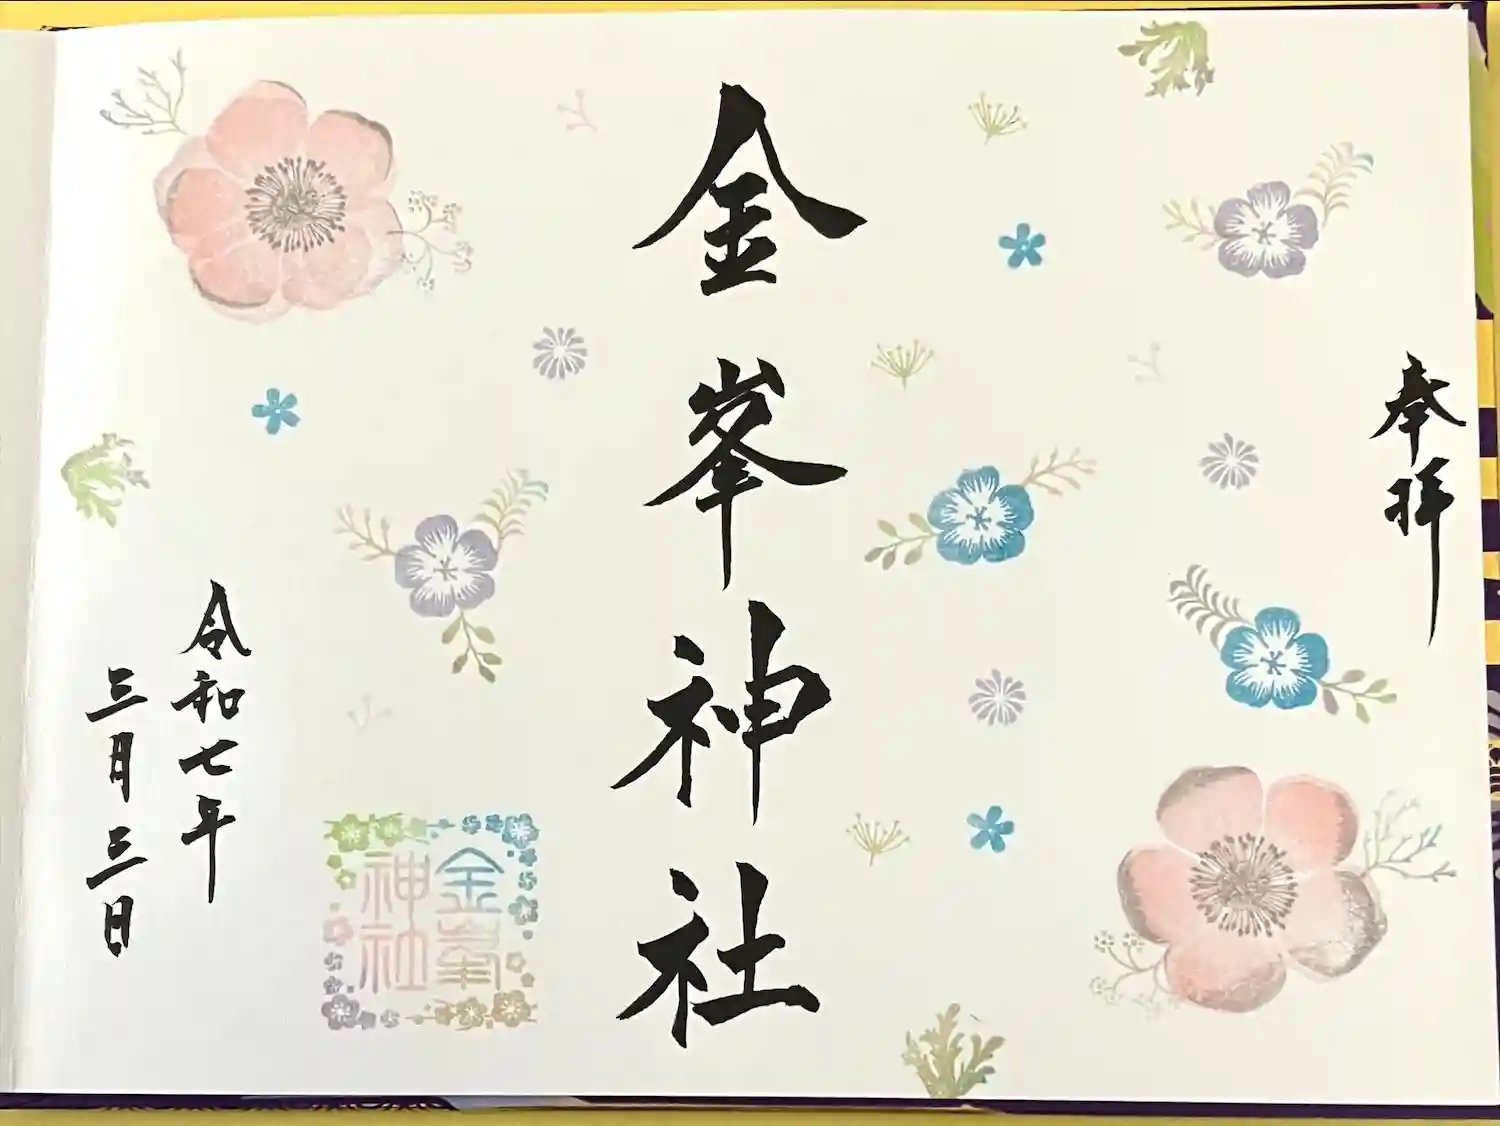 奉拝
金峯神社
金峯
神社
令和七年
三月三日